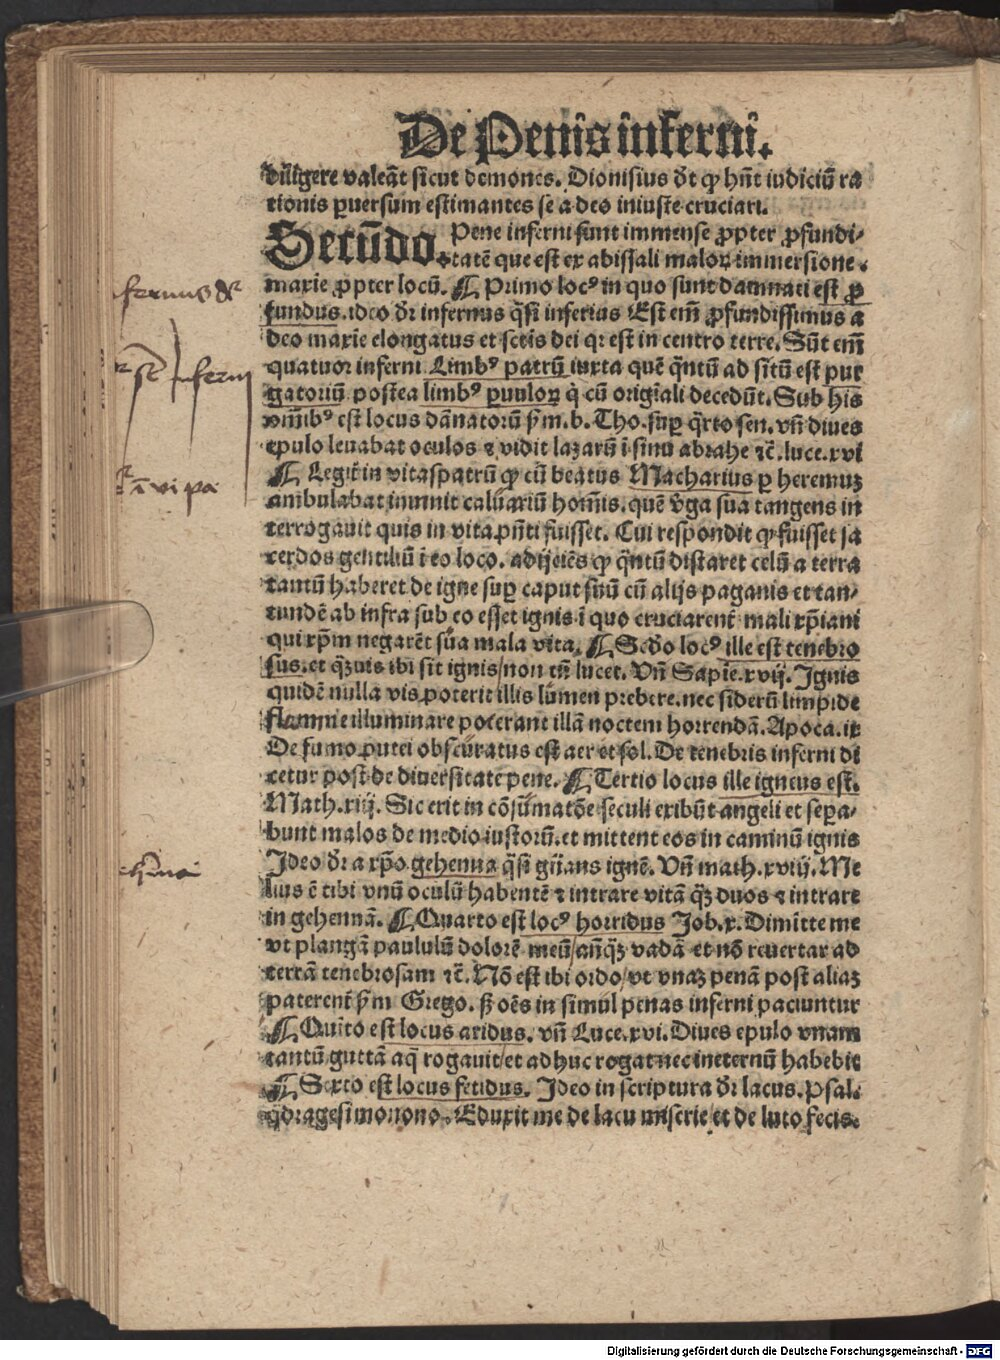 De Penis inferni.
diligere valeãt sicut demones. Dionisius dr̃t ꝙ hñt iudiciũ ra
tionis ꝑuersum estimantes se a deo iniuste cruciari.
Secũdo. Pene inferni sunt immense ꝓpter ꝓfundi-
tatẽ que est ex abissali maloꝝ immersione.
maxie ꝓpter locũ. ¶ Primo locꝰ in quo sunt damnati est ꝓ
fundus. ideo dr̃ infernus q̃si inferius Est em̃ ꝓfundissimus a
deo maxie elongatus et sctis dei qꝛ est in centro terre. Sũt em̃
quatuor inferni Limbꝰ patrũ iuxta quẽ q̃ntũ ad sitũ est pur
gatoriũ postea limbꝰ ꝑuuloꝝ q̇ cũ origiali decedũt. Sub his
om̃ibꝰ est locus dãnatorũ ẜm. b. Tho. suꝑ q̃rto sen. vñ diues
epulo leuabat oculos ⁊ vidit lazarũ ĩ sinu abrahe ⁊c̃. luce. xvi
¶ Legit̃ in vitaspatrũ ꝙ cũ beatus Macharius ꝑ heremuꝫ
ambulabat inuenit caluariũ hom̃is. quẽ v̾ga sua tangens in
terrogauit quis in vita pñti fuisset. Cui respondit ꝙ fuisset sa
cerdos gentiliũ ĩ eo loco. adijciẽs ꝙ q̃ntũ distaret celũ a terra
tantũ haberet de igne suꝑ caput suũ cũ alijs paganis et tan-
tundẽ ab infra sub eo esset ignis ĩ quo cruciarent̃ mali xp̃iani
qui xp̃m negarẽt sua mala vita. ¶ Scd̃o locꝰ ille est tenebro
sus. et q̃ꝫuis ibi sit ignis/non tñ lucet. Vñ Sapie. xvij. Ignis
quidẽ nulla vis poterit illis lumen prebere. nec siderũ limpide
flamme illuminare poterant illã noctem horrendã. Apoca. ix
De fumo putei obscuratus est aer et sol. De tenebris inferni di
cetur post de diuersitate pene. ¶ Tertio locus ille igneus est.
Math. xiij. Sic erit in cõsũmatõe seculi exibũt angeli et sepa-
bunt malos de medio iustorũ. et mittent eos in caminũ ignis
Ideo dr̃ a xp̃o gehenna q̃si gñans ignẽ. Vñ math. xviij. Me
lius ẽ tibi vnũ oculũ habentẽ ⁊ intrare vitã q̃ꝫ duos ⁊ intrare
in gehennã. ¶ Quarto est locꝰ horridus Job. x. Dimitte me
vt plangã paululũ dolorẽ meũ/ anq̃ꝫ vadã et nõ reuertar ad
terrã tenebrosam ⁊c̃. Nõ est ibi ordo/vt vnaꝫ penã post aliaꝫ
paterent̃ ẜm Grego. ſꝫ oẽs in simul penas inferni paciuntur
¶ Quĩto est locus aridus. vñ Luce. xvi. Diues epulo vnam
tantũ guttã aq̃ rogauit/et adhuc rogat nec ineternũ habebit
¶ Sexto est locus fetidus. Ideo in scriptura dr̃ lacus. Psal.
q̃dragesimonono. Eduxit me de lacu miserie/et de luto fecis.
Digitalisierung gefördert durch die Deutsche Forschungsgemeinschaft - DFG